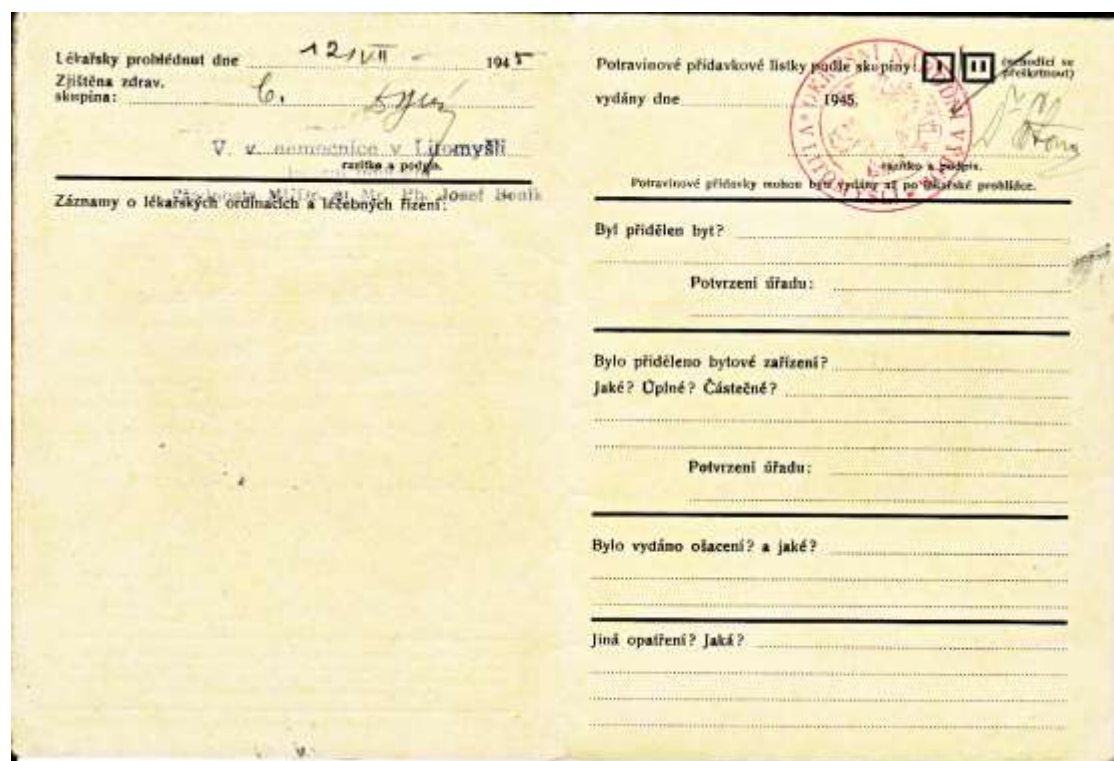 Lékařsky prohlédnut dne 12/VII - 1945
Zjištěna zdrav.
skupina: C.
V. v. nemocnice v Litomyšli
razítko a podpis.
Josef Beník
Záznamy o lékařských ordinacích a léčebných řízení:
Potravinové přídavkové lístky podle skupiny: I II (nehodící se
přeškrtnout)
vydány dne 1945.
razítko a podpis.
Potravinové přídavky mohou být vydány až po lékařské prohlídce.
Byl přidělen byt?
Potvrzení úřadu:
Bylo přiděleno bytové zařízení?
Jaké? Úplné? Částečné?
Potvrzení úřadu:
Bylo vydáno ošacení? a jaké?
Jiná opatření? Jaká?